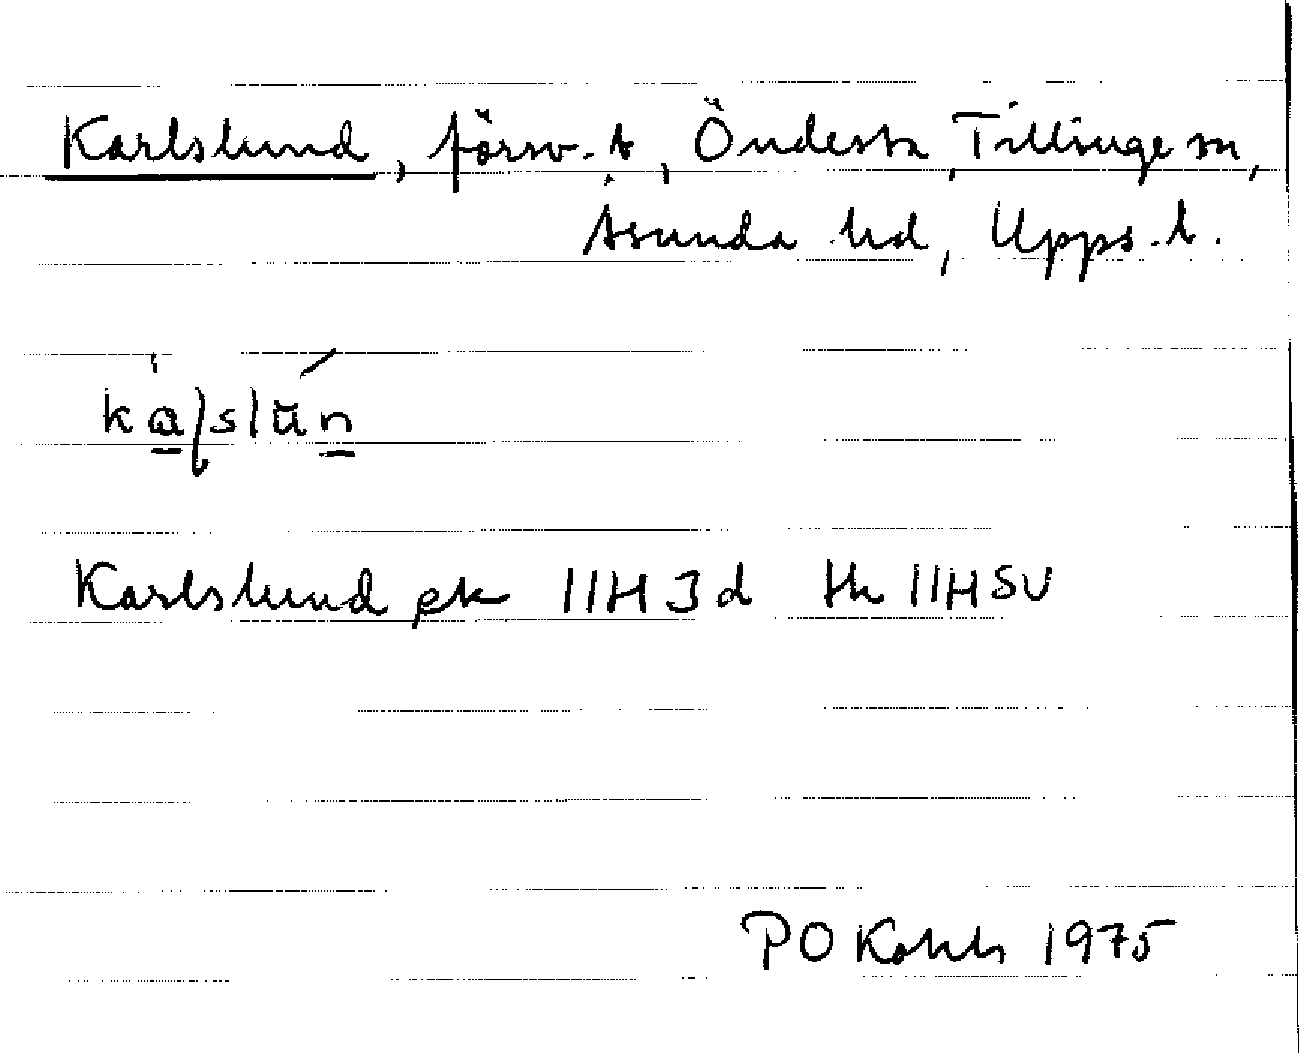 Karlslund, försv. t, Öndesta, Tillinge sn,
Åsunda hd, Upps. l.
Karlslund ek 11H 3d tk 11H SV
P O 1975